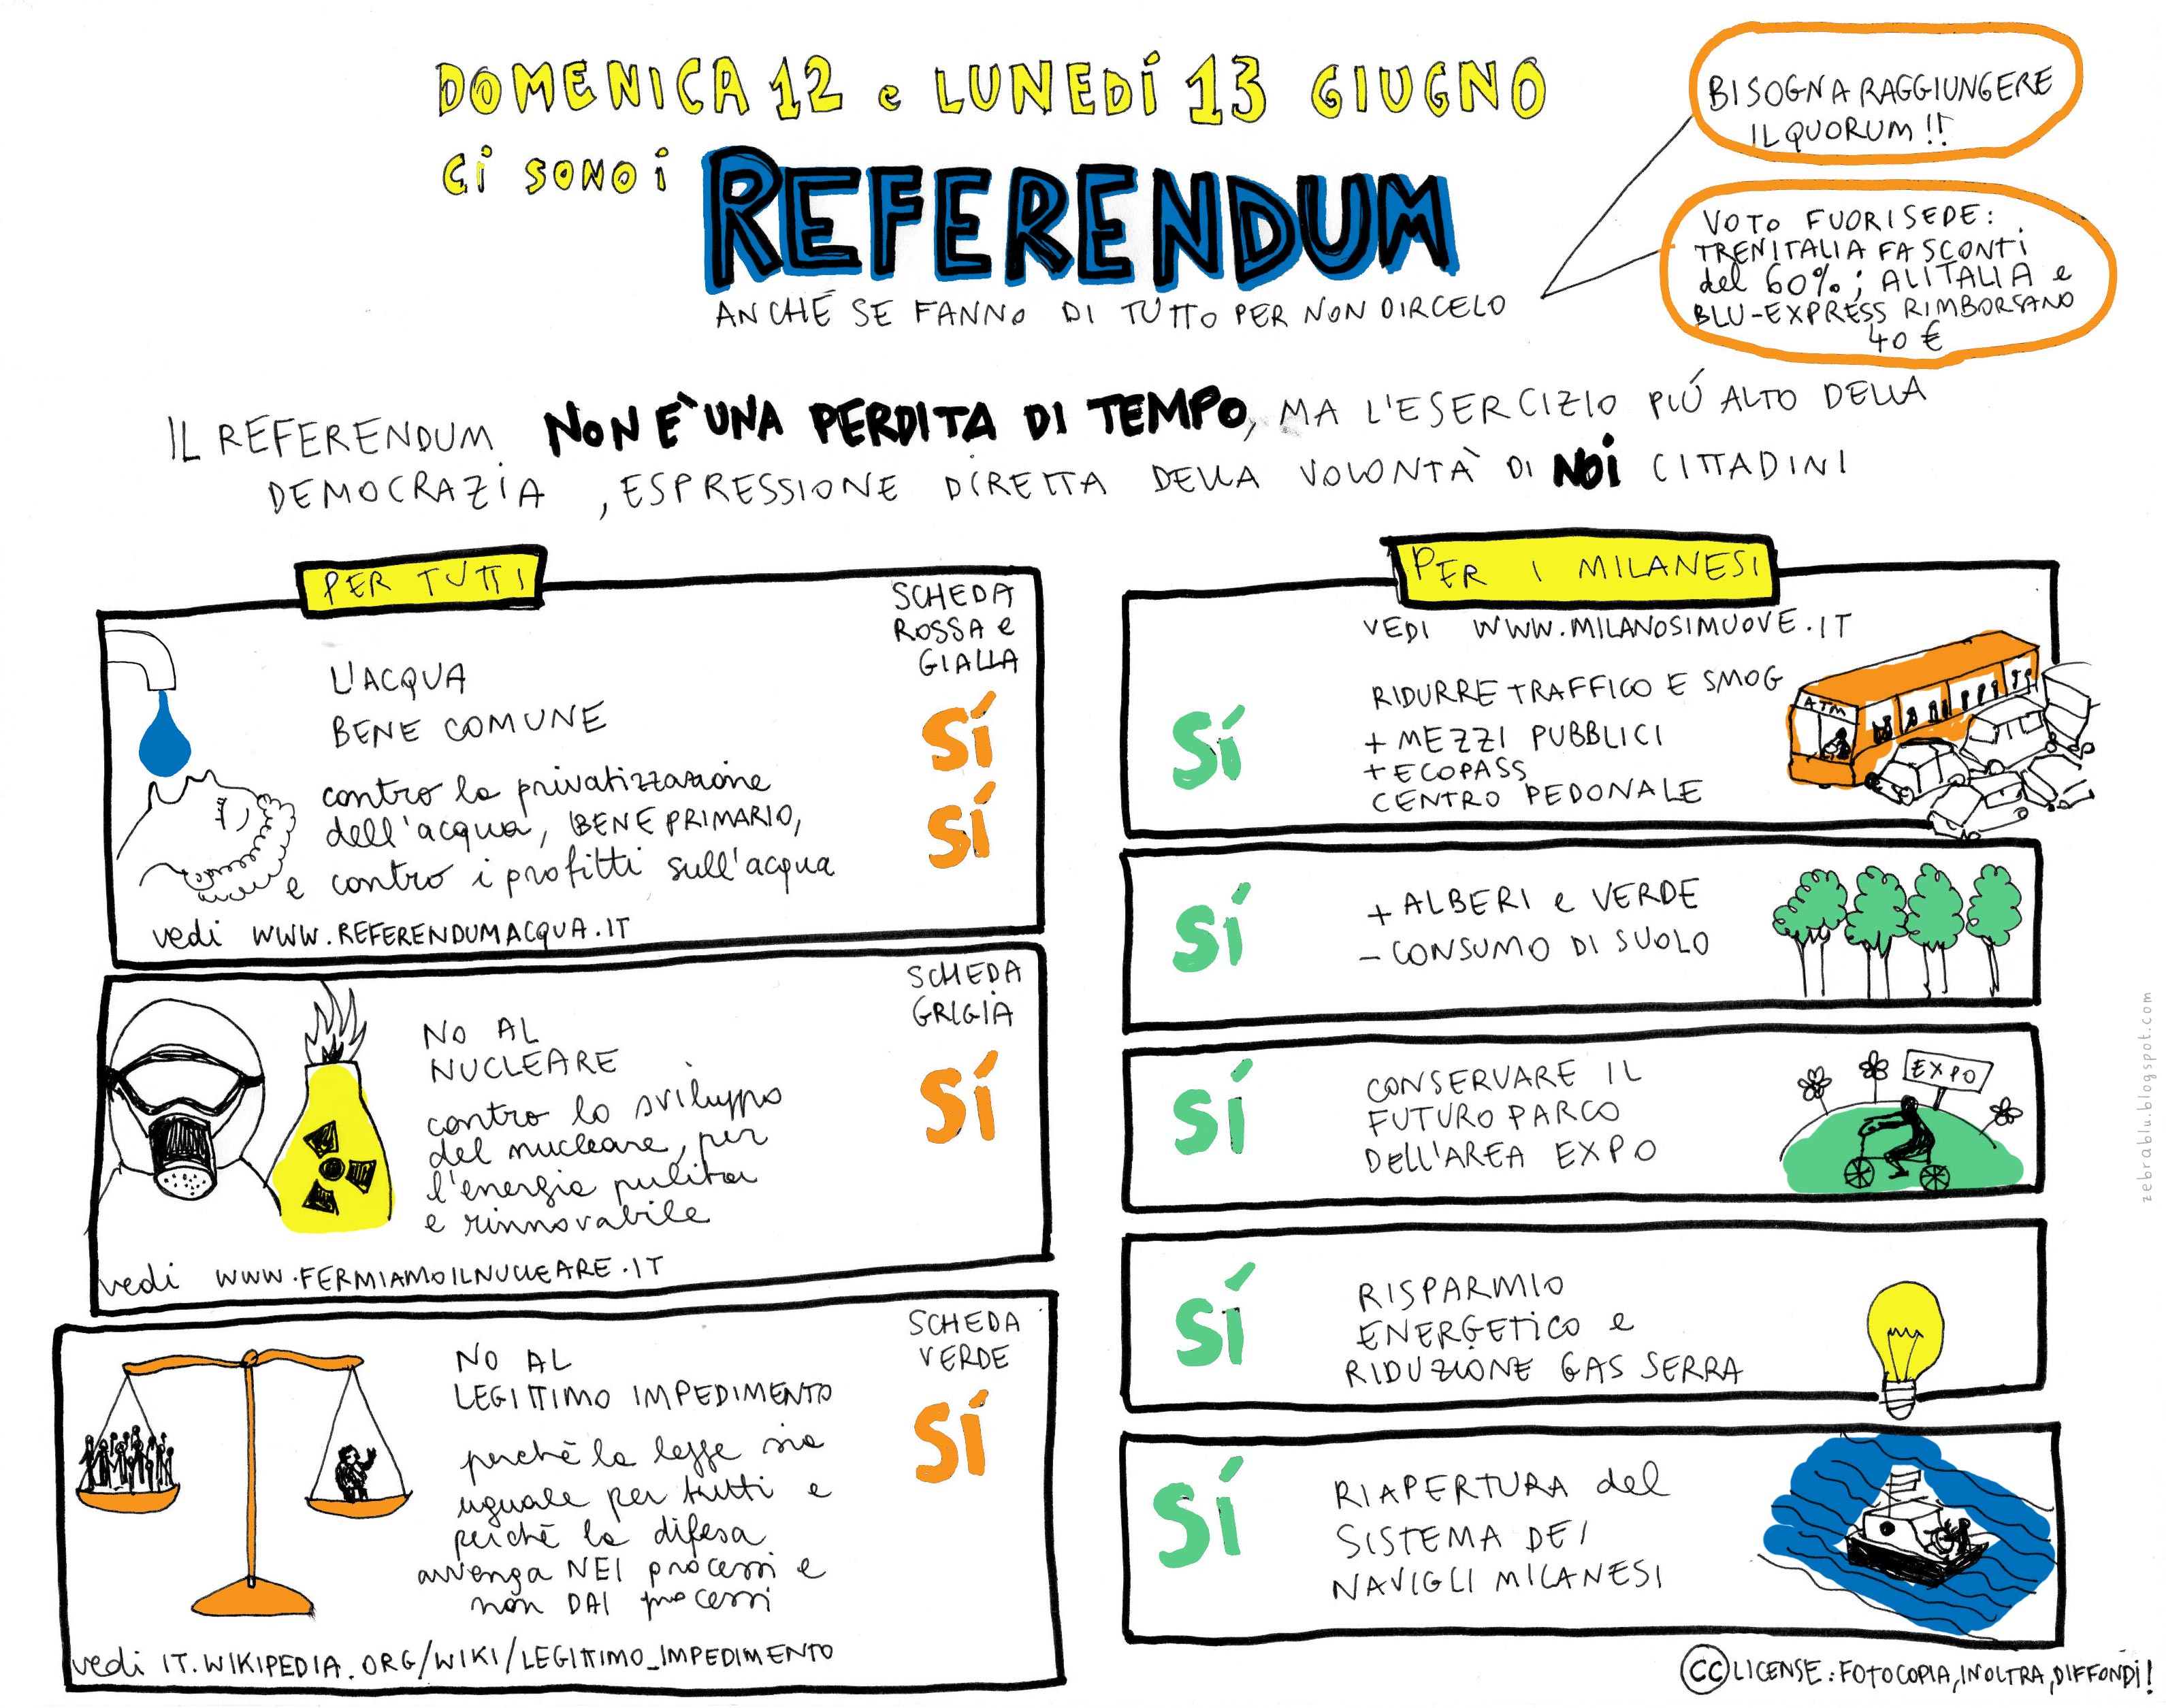 DOMENICA 12 e LUNEDÍ 13 GIUGNO
Ci SONO i REFERENDUM
ANCHE SE FANNO DI TUTTO PER NON DIRCELO
BISOGNA RAGGIUNGERE
IL QUORUM!!
VOTO FUORISEDE:
TRENITALIA FA SCONTI
del 60%; ALITALIA e
BLU-EXPRESS RIMBORSANO
40 €
IL REFERENDUM NON E' UNA PERDITA DI TEMPO, MA L'ESERCIZIO PIÚ ALTO DELLA
DEMOCRAZIA, ESPRESSIONE DIRETTA DELLA VOLONTÀ DI NOI CITTADINI
PER TUTTI
SCHEDA
ROSSA e
GIALLA
SÍ
SÍ
L'ACQUA
BENE COMUNE
contro la privatizzazione
dell'acqua, BENE PRIMARIO,
e contro i profitti sull'acqua
vedi WWW.REFERENDUMACQUA.IT
SCHEDA
GRIGIA
SÍ
NO AL
NUCLEARE
contro lo sviluppo
del nucleare, per
l'energia pulita
e rinnovabile
vedi WWW.FERMIAMOILNUCLEARE.IT
SCHEDA
VERDE
SÍ
NO AL
LEGITTIMO IMPEDIMENTO
perchè la legge sia
uguale per tutti e
perchè la difesa
avvenga NEI processi e
non DAI processi
vedi IT.WIKIPEDIA.ORG/WIKI/LEGITTIMO_IMPEDIMENTO
PER I MILANESI
VEDI WWW.MILANOSIMUOVE.IT
SÍ
RIDURRE TRAFFICO E SMOG
+ MEZZI PUBBLICI
+ ECOPASS
CENTRO PEDONALE
ATM
SÍ
+ ALBERI e VERDE
- CONSUMO DI SUOLO
SÍ
CONSERVARE IL
FUTURO PARCO
DELL'AREA EXPO
EXPO
SÍ
RISPARMIO
ENERGETICO e
RIDUZIONE GAS SERRA
SÍ
RIAPERTURA del
SISTEMA DEI
NAVIGLI MILANESI
CC LICENSE: FOTOCOPIA, INOLTRA, DIFFONDI!
zebrablu.blogspot.com